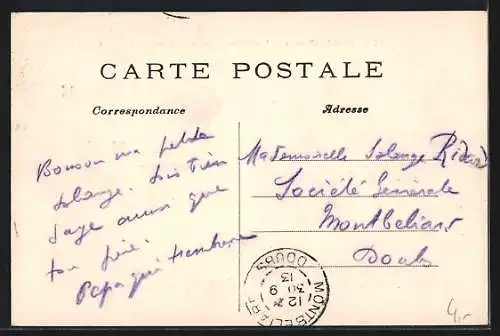 CARTE POSTALE
Correspondance
Adresse
Bonsoir ma petite
Solange. Sois bien
sage ainsi que
ton frère.
Papa qui
Mademoiselle Solange
Société Générale
Montbéliard
Doubs
MONTBELIARD
DOUBS
12
30 9
13